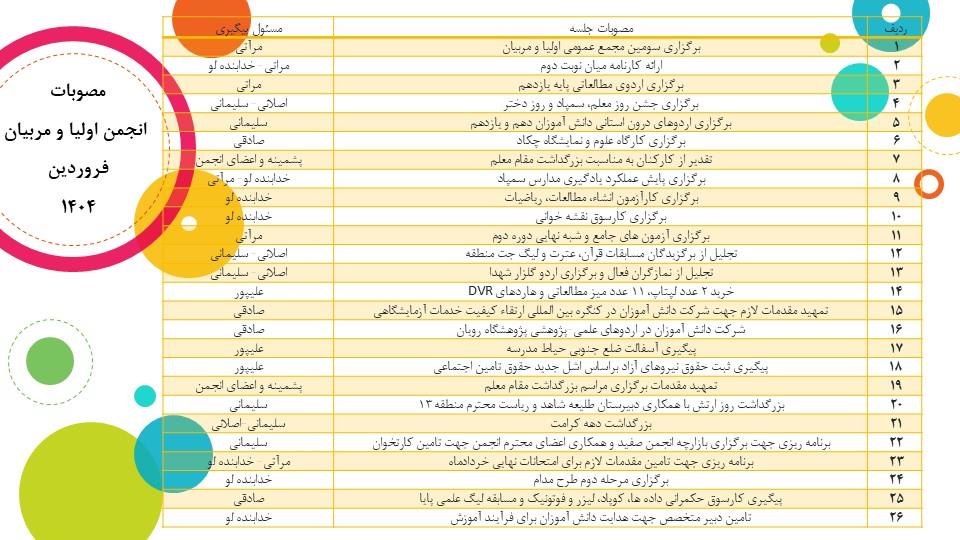 مصوبات
انجمن اولیا و مربیان
فروردین
۱۴۰۴
ردیف مصوبات جلسه مسئول پیگیری
۱ برگزاری سومین مجمع عمومی اولیا و مربیان مرآتی
۲ ارائه کارنامه میان نوبت دوم مراتی - خدابنده لو
۳ برگزاری اردوی مطالعاتی پایه یازدهم مراتی
۴ برگزاری جشن روز معلم، سمپاد و روز دختر اصلانی - سلیمانی
۵ برگزاری اردوهای درون استانی دانش آموزان دهم و یازدهم سلیمانی
۶ برگزاری کارگاه علوم و نمایشگاه چکاد صادقی
۷ تقدیر از کارکنان به مناسبت بزرگداشت مقام معلم پشمینه و اعضای انجمن
۸ برگزاری پایش عملکرد یادگیری مدارس سمپاد خدابنده لو- مرآتی
۹ برگزاری کارآزمون انشاء، مطالعات، ریاضیات خدابنده لو
۱۰ برگزاری کارسوق نقشه خوانی خدابنده لو
۱۱ برگزاری آزمون های جامع و شبه نهایی دوره دوم مرآتی
۱۲ تجلیل از برگزیدگان مسابقات قرآن، عترت و لیگ جت منطقه اصلانی - سلیمانی
۱۳ تجلیل از نمازگران فعال و برگزاری اردو گلزار شهدا اصلانی - سلیمانی
۱۴ خرید ۲ عدد لپتاپ، ۱۱ عدد میز مطالعاتی و هاردهای DVR علیپور
۱۵ تمهید مقدمات لازم جهت شرکت دانش آموزان در کنگره بین المللی ارتقاء کیفیت خدمات آزمایشگاهی صادقی
۱۶ شرکت دانش آموزان در اردوهای علمی-پژوهشی پژوهشگاه رویان صادقی
۱۷ پیگیری آسفالت ضلع جنوبی حیاط مدرسه علیپور
۱۸ پیگیری ثبت حقوق نیروهای آزاد براساس اشل جدید حقوق تامین اجتماعی علیپور
۱۹ تمهید مقدمات برگزاری مراسم بزرگداشت مقام معلم پشمینه و اعضای انجمن
۲۰ بزرگداشت روز ارتش با همکاری دبیرستان طلیعه شاهد و ریاست محترم منطقه ۱۳ سلیمانی
۲۱ بزرگداشت دهه کرامت سلیمانی-اصلانی
۲۲ برنامه ریزی جهت برگزاری بازارچه انجمن صفید و همکاری اعضای محترم انجمن جهت تامین کارتخوان سلیمانی
۲۳ برنامه ریزی جهت تامین مقدمات لازم برای امتحانات نهایی خردادماه مرآتی - خدابنده لو
۲۴ برگزاری مرحله دوم طرح مدام خدابنده لو
۲۵ پیگیری کارسوق حکمرانی داده ها، کوپاد، لیزر و فوتونیک و مسابقه لیگ علمی پایا صادقی
۲۶ تامین دبیر متخصص جهت هدایت دانش آموزان برای فرآیند آموزش خدابنده لو